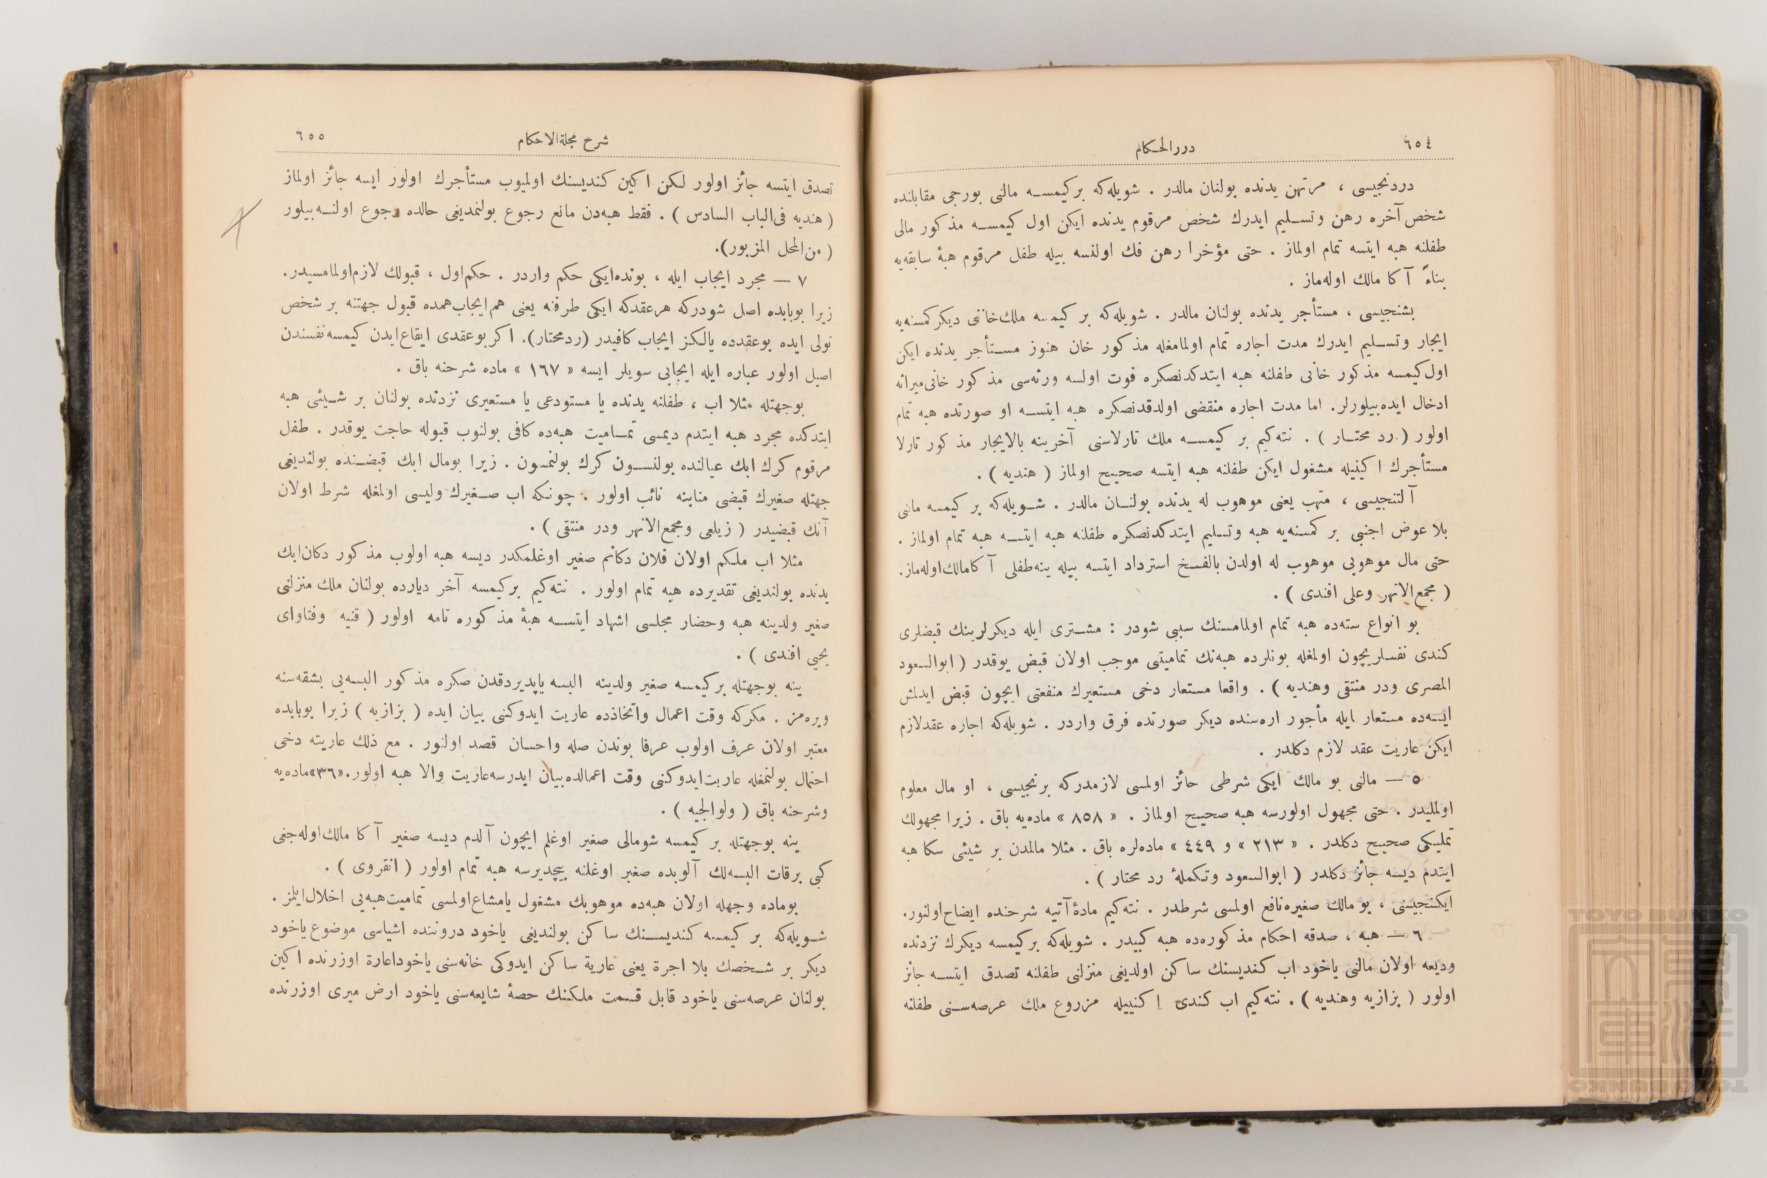 ٦٥٤
دررالحكام
دردنجيسى ، مرتهن يدنده بولنان مالدر . شويله‌كه بركيمسه مالنى بورجى مقابلنده
شخص آخره رهن وتسليم ايدرك شخص مرقوم يدنده ايكن اول كيمسه مذكور مالى
طفلنه هبه ايتسه تمام اولماز . حتى مؤخرا رهن فك اولنسه بيله طفل مرقوم هبۀ سابقه‌يه
بناءً آكا مالك اوله‌ماز .
بشنجيسى ، مستأجر يدنده بولنان مالدر . شويله‌كه بر كيمسه ملك‌خاننى ديكركمسنه‌يه
ايجار وتسليم ايدرك مدت اجاره تمام اولمامغله مذكور خان هنوز مستأجر يدنده ايكن
اول‌كيمسه مذكور خانى طفلنه هبه ايتدكدنصكره فوت اولسه ورثه‌سى مذكور خانى‌ميراثه
ادخال ايده‌بيلورلر. اما مدت اجاره منقضى اولدقدنصكره هبه ايتسه او صورتده هبه تمام
اولور ( رد محتار ) . نته‌كيم بر كيمسه ملك تارلاسنى آخرينه بالايجار مذكور تارلا
مستأجرك اكينيله مشغول ايكن طفلنه هبه ايتسه صحيح اولماز ( هنديه ) .
آلتنجيسى ، متهب يعنى موهوب له يدنده بولنان مالدر . شويله‌كه بر كيمسه مالنى
بلا عوض اجنبى بر كمسنه‌يه هبه وتسليم ايتدكدنصكره طفلنه هبه ايتسه هبه تمام اولماز .
حتى مال موهوبى موهوب له اولدن بالفسخ استرداد ايتسه بيله ينه‌طفلى آكامالك‌اوله‌ماز.
( مجمع‌الانهر وعلى افندى ) .
بو انواع سته‌ده هبه تمام اولمامسنك سببى شودر : مشترى ايله ديكرلرينك قبضلرى
كندى نفسلريچون اولمغله بونلرده هبه‌نك تماميتى موجب اولان قبض يوقدر ( ابوالسعود
المصرى ودر منتقى وهنديه ) . واقعا مستعار دخى مستعيرك منفعتى ايچون قبض ايدلش
ايسه‌ده مستعار ايله مأجور اره‌سنده ديكر صورتده فرق واردر . شويله‌كه اجاره عقدلازم
ايكن عاريت عقد لازم دكلدر .
٥ — مالنى بو مالك ايكى شرطى حائز اولمسى لازمدركه برنجيسى ، او مال معلوم
اولمليدر . حتى مجهول اولورسه هبه صحيح اولماز . « ٨٥٨ » ماده‌يه باق . زيرا مجهولك
تمليكى صحيح دكلدر . « ٢١٣ » و « ٤٤٩ » ماده‌لره باق . مثلا مالمدن بر شيئى سكا هبه
ايتدم ديسه جائز دكلدر ( ابوالسعود وتكملۀ رد محتار ) .
ايكنجيسى ، بو مالك صغيره‌نافع اولمسى شرطدر . نته‌كيم مادۀ‌آتيه شرحنده ايضاح‌اولنور.
٦ — هبه ، صدقه احكام مذكوره‌ده هبه كبيدر . شويله‌كه بركيمسه ديكرك نزدنده
وديعه اولان مالنى ياخود اب كنديسنك ساكن اولديغى منزلنى طفلنه تصدق ايتسه جائز
اولور ( بزازيه وهنديه ) . نته‌كيم اب كندى اكنييله مزروع ملك عرصه‌سنى طفلنه
شرح مجلةالاحكام
٦٥٥
تصدق ايتسه جائز اولور لكن اكين كنديسنك اولميوب مستأجرك اولور ايسه جائز اولماز
( هنديه فى‌الباب السادس ) . فقط هبه‌دن مانع رجوع بولنمديغى حالده رجوع اولنه‌بيلور
( من‌المحل المزبور).
٧ — مجرد ايجاب ايله ، بونده‌ايكى حكم واردر . حكم‌اول ، قبولك لازم‌اولمامسيدر.
زيرا بوبابده اصل شودركه هرعقدكه ايكى طرفنه يعنى هم‌ايجاب‌همده قبول جهتنه بر شخص
تولى ايده بوعقدده يالكز ايجاب كافيدر (ردمحتار). اكربوعقدى ايقاع‌ايدن كيمسه‌نفسندن
اصيل اولور عباره ايله ايجابى سويلر ايسه « ١٦٧ » ماده شرحنه باق .
بوجهتله مثلا اب ، طفلنه يدنده يا مستودعى يا مستعيرى نزدنده بولنان بر شيئى هبه
ايتدكده مجرد هبه ايتدم ديمسى تماميت هبه‌ده كافى بولنوب قبوله حاجت يوقدر . طفل
مرقوم كرك ابك عيالنده بولنسون كرك بولنمسون . زيرا بومال ابك قبضنده بولنديغى
جهتله صغيرك قبضى منابنه نائب اولور . چونكه اب صغيرك وليسى اولمغله شرط اولان
آنك قبضيدر ( زيلعى ومجمع‌الانهر ودر منتقى ) .
مثلا اب ملكم اولان فلان دكانم صغير اوغلمكدر ديسه هبه اولوب مذكور دكان‌ابك
يدنده بولنديغى تقديرده هبه تمام اولور . نته‌كيم بركيمسه آخر ديارده بولنان ملك منزلنى
صغير ولدينه هبه وحضار مجلسى اشهاد ايتسه هبۀ مذكوره تامه اولور ( قنيه وفتاواى
يحيى افندى ) .
ينه بوجهتله بركيمسه صغير ولدينه البسه ياپديردقدن صكره مذكور البسه‌يى بشقه‌سنه
ويره‌مز . مكركه وقت اعمال واتخاذده عاريت ايدوكنى بيان ايده ( بزازيه ) زيرا بوبابده
معتبر اولان عرف اولوب عرفا بوندن صله واحسان قصد اولنور . مع ذلك عاريته دخى
احتمال بولنمغله عاريت‌ايدوكنى وقت اعمالده‌بيان ايدرسه‌عاريت والا هبه اولور.«٣٦»ماده‌يه
وشرحنه باق ( ولوالجيه ) .
ينه بوجهتله بر كيمسه شومالى صغير اوغلم ايچون آلدم ديسه صغير آكا مالك‌اوله‌جغى
كبى برقات البسه‌لك آلوبده صغير اوغلنه بيچديرسه هبه تمام اولور ( انقروى ) .
بوماده وجهله اولان هبه‌ده موهوبك مشغول يامشاع‌اولمسى تماميت‌هبه‌يى اخلال‌ايلمز .
شويله‌كه بر كيمسه كنديسنك ساكن بولنديغى ياخود دروننده اشياسى موضوع ياخود
ديكر بر شخصك بلا اجرة يعنى عارية ساكن ايدوكى خانه‌سنى ياخوداعارة اوزرنده اكين
بولنان عرصه‌سنى ياخود قابل قسمت ملكنك حصۀ شايعه‌سنى ياخود ارض ميرى اوزرنده
TOYO BUNKO